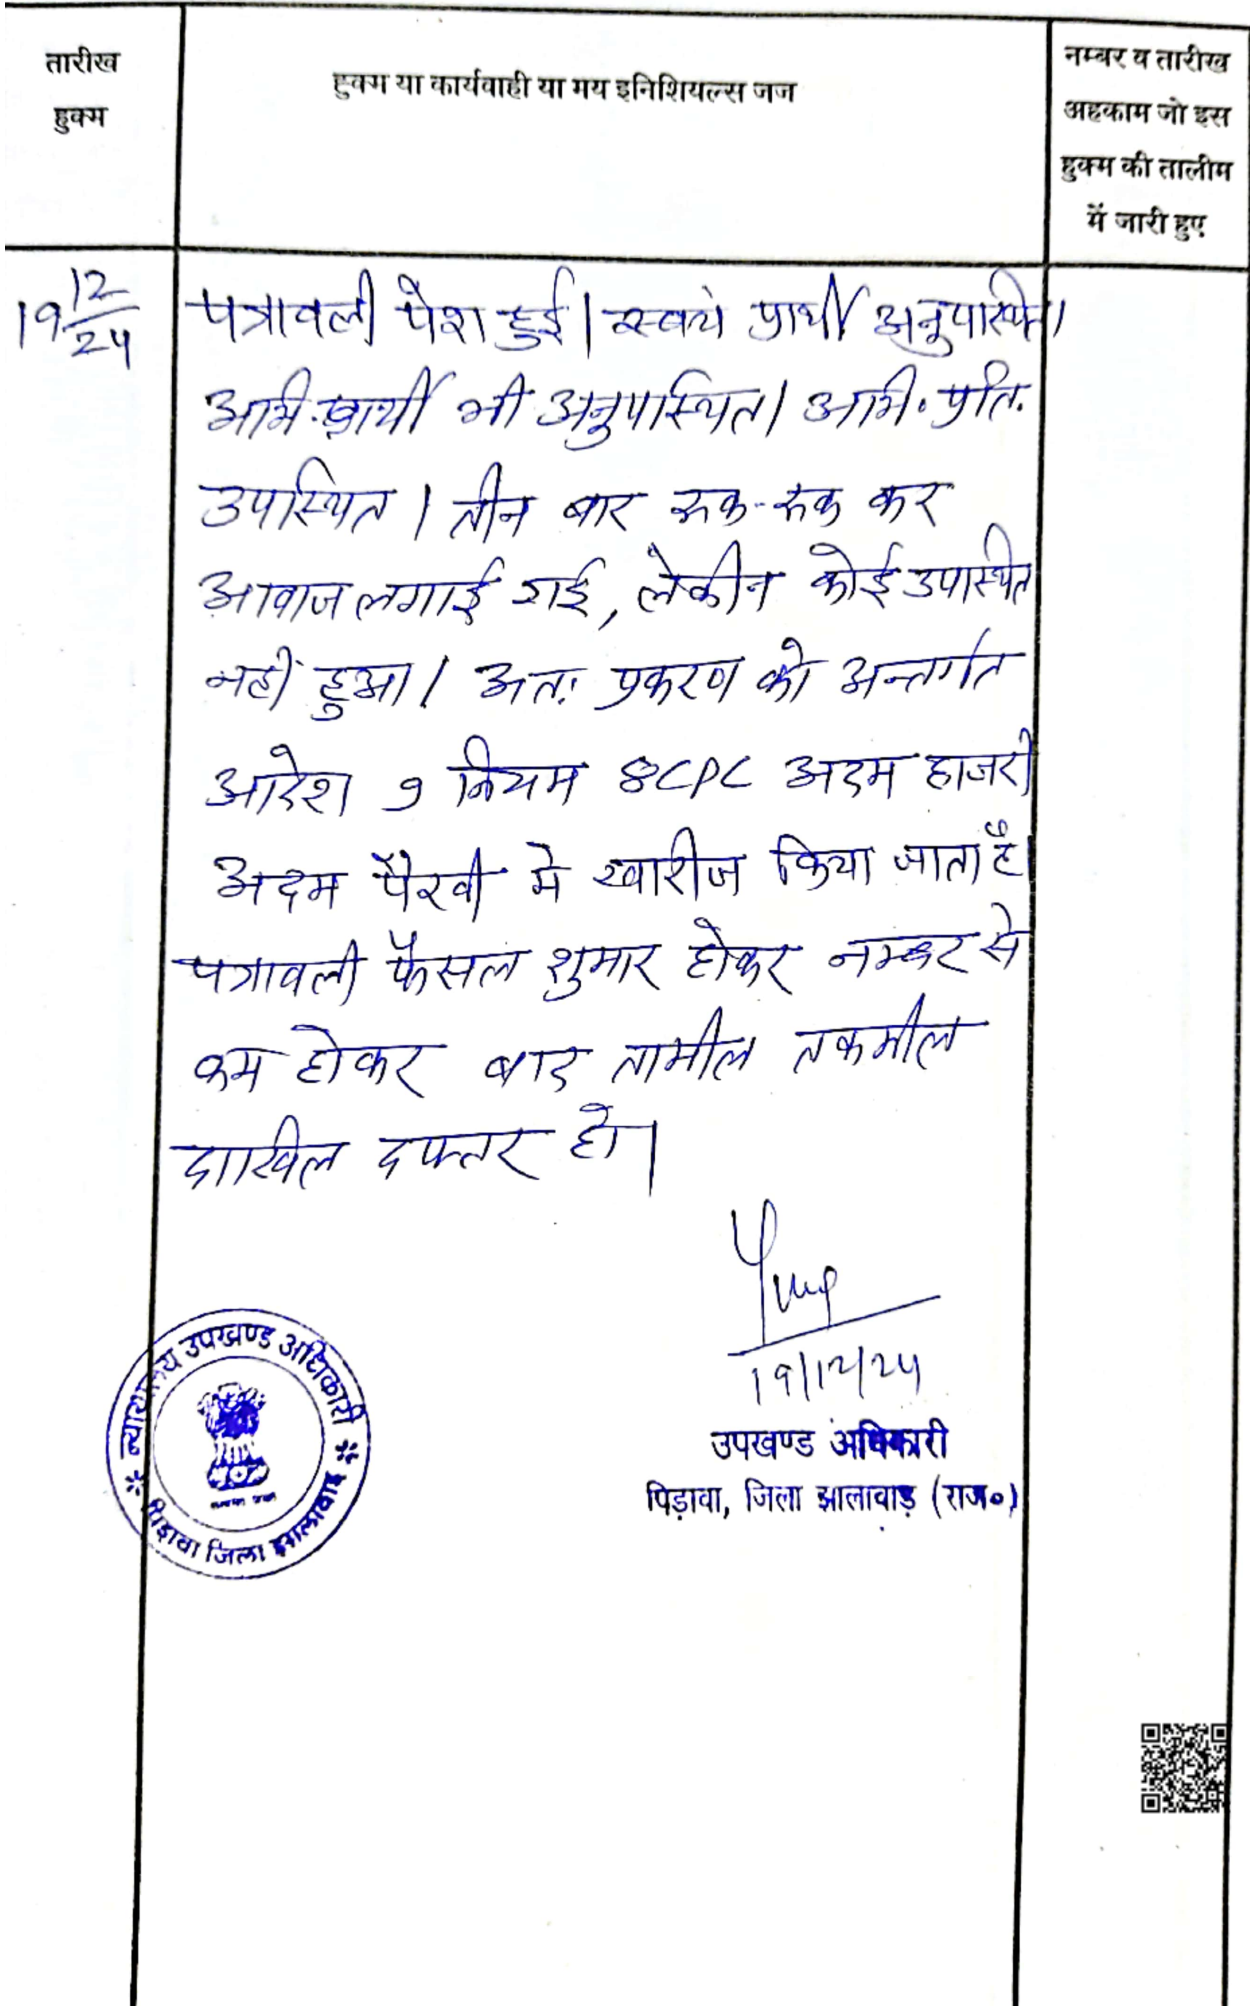 तारीख
हुक्म
हुक्म या कार्यवाही या मय इनिशियल्स जज
नम्बर व तारीख
अहकाम जो इस
हुक्म की तालीम
में जारी हुए
19 12/24
पत्रावली पेश हुई। स्वयं प्रार्थी अनुपास्थित।
अभि. प्रार्थी भी अनुपास्थित। अभि. प्रति.
उपास्थित। तीन बार रूक-रूक कर
आवाज लगाई गई, लेकीन कोई उपास्थित
नहीं हुआ। अतः प्रकरण को अन्तर्गत
आदेश 9 नियम 8 CPC अदम हाजरी
अदम पैरवी में खारीज किया जाता है।
पत्रावली फैसल शुमार होकर नम्बर से
कम होकर बाद तामील तकमील
दाखिल दफ्तर हो।
19/12/24
उपखण्ड अधिकारी
पिड़ावा, जिला झालावाड़ (राज०)
न्यायालय उपखण्ड अधिकारी
पिड़ावा जिला झालावाड़